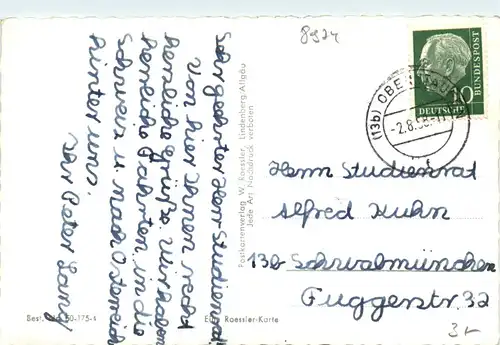 8924
Sehr geehrter Herr Studienrat
Von hier Ihnen recht
herzliche Grüße. Wir haben
herrliche Fahrten in die
Schweiz u. nach Österreich
hinter uns.
Ihr Peter
Postkartenverlag W. Roessler, Lindenberg/Allgäu
Jede Art Nachdruck verboten
Best. 50-175-s
Roessler-Karte
10
DEUTSCHE
BUNDESPOST
(13b) OBE
-2.8.58.
Herrn Studienrat
Alfred Kuhn
13b Schwabmünchen
Fuggerstr. 32